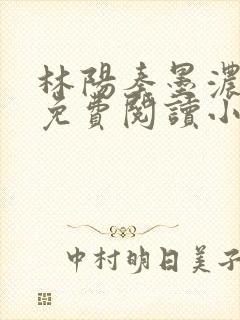 林陽秦墨濃
免費閱讀小
中村明日美子